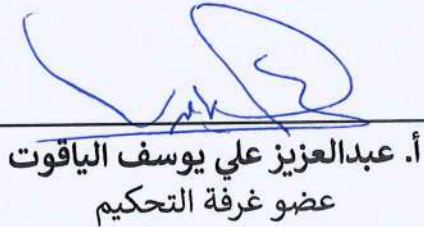 أ. عبدالعزيز علي يوسف الياقوت
عضو غرفة التحكيم